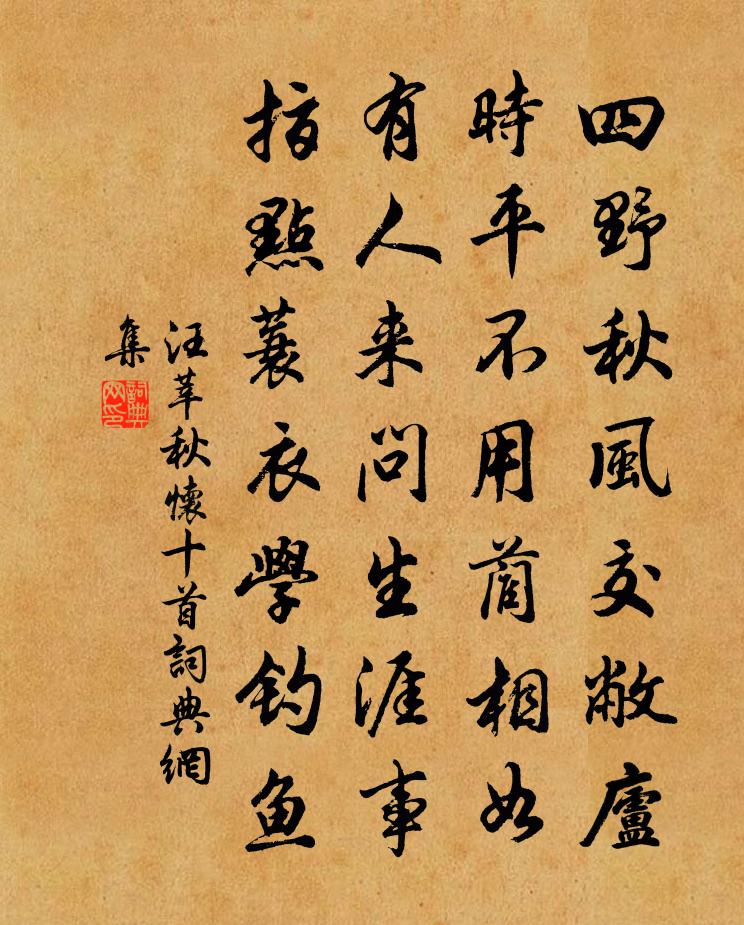 四野秋風交敝廬
時平不用藺相如
有人来問生涯事
指點蓑衣學钓鱼
汪莘秋懷十首詞典網
集
詞典
网印